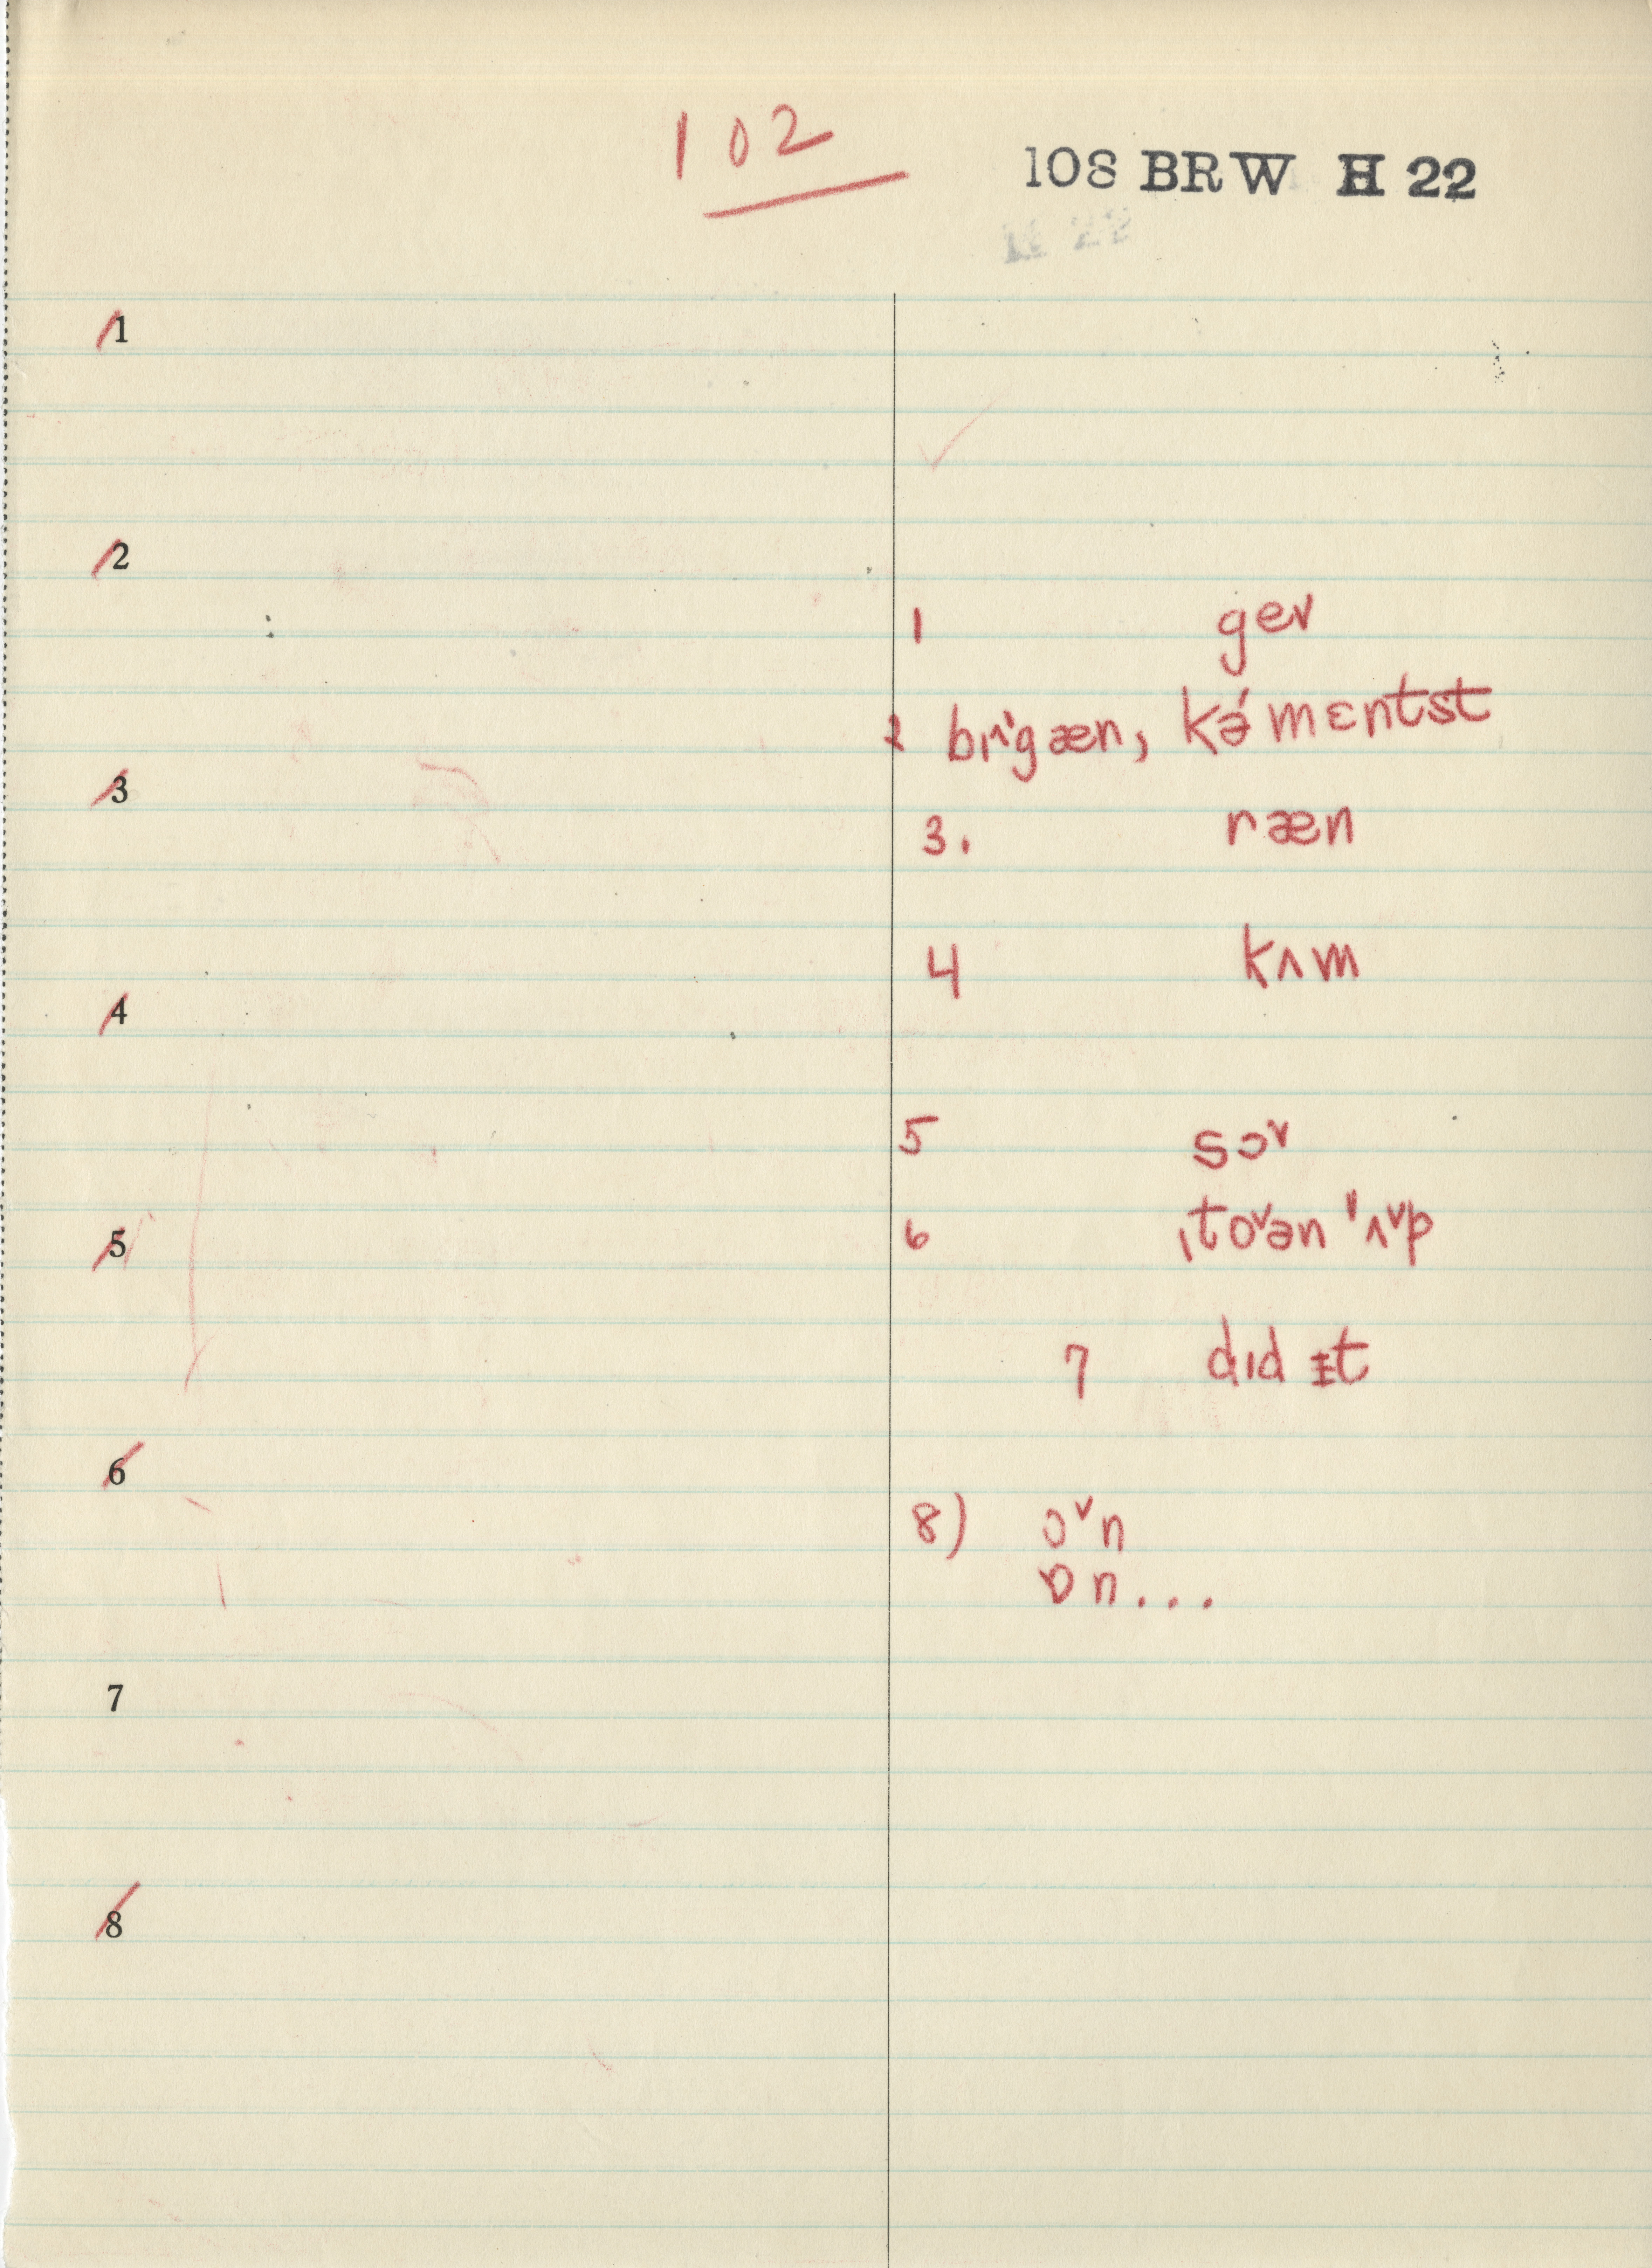 102
108 BRW H 22
H 22
1
2
1 gev
2 brɪ'gæn, kə́mɛntst
3
3. ræn
4 kʌm
4
5 sɔˇ
6 ˌtoˇən 'ʌˇp
5
7 dɪd ɪt
6
8) ɔˇn
ɒn...
7
8